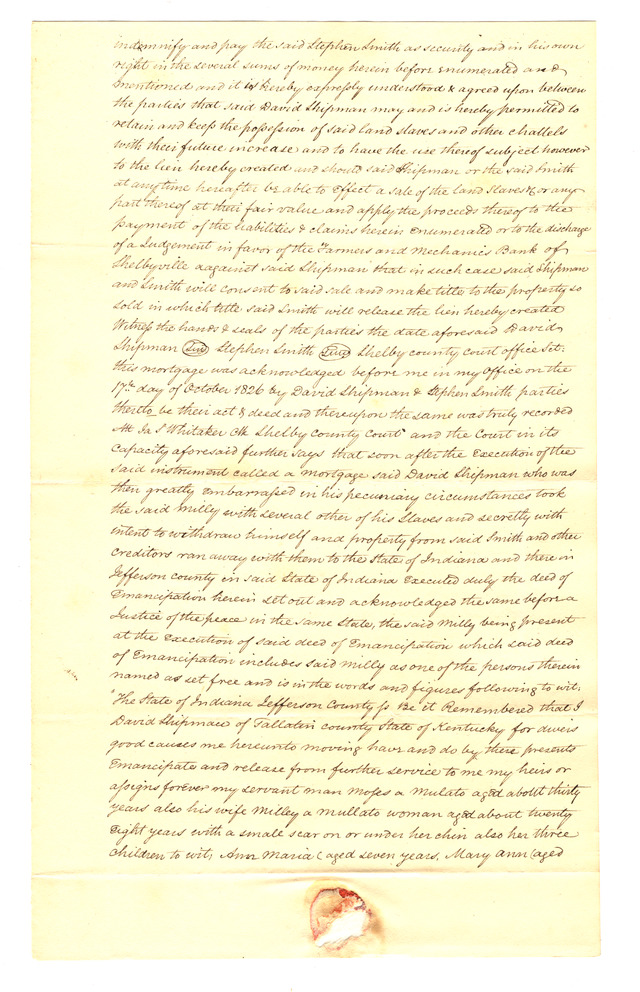 indemnify and pay the said Stephen Smith as security and in his own
right in the several sums of money herein before enumerated and
mentioned and it is hereby expressly understood & agreed upon between
the parties that said David Shipman may and is hereby permitted to
retain and keep the possession of said land slaves and other chattels
with their future increase and to have the use thereof subject however
to the lien hereby created and should said Shipman or the said Smith
at any time hereafter be able to effect a sale of the land slaves & or any
part thereof at their fair value and apply the proceeds thereof to the
payment of the liabilities & claims herein enumerated or to the discharge
of a Judgement in favor of the Farmers and Mechanics Bank of
Shelbyville against said Shipman that in such case said Shipman
and Smith will consent to said sale and make title to the property so
sold in which title said Smith will release the lien hereby created
Witness the hands & seals of the parties the date aforesaid David
Shipman Seal Stephen Smith Seal Shelby county court office Sct.
this mortgage was acknowledged before me in my office on the
17th day of October 1826 by David Shipman & Stephen Smith parties
thereto be their act & deed and thereupon the same was truly recorded
Att Ja S Whitaker Clk Shelby County Court and the Court in its
Capacity aforesaid further says that soon after the execution of the
said instrument called a mortgage said David Shipman who was
then greatly embarrassed in his pecuniary circumstances took
the said Milly with several other of his slaves and secretly with
intent to withdraw himself and property from said Smith and other
creditors ran away with them to the State of Indiana and there in
Jefferson county in said State of Indiana executed duly the deed of
Emancipation herein set out and acknowledged the same before a
Justice of the peace in the same State, the said Milly being present
at the execution of said deed of Emancipation which said deed
of Emancipation includes said Milly as one of the persons therein
named as set free and is in the words and figures following to wit:
The State of Indiana Jefferson County Ss Be it Remembered that I
David Shipman of Gallatin county State of Kentucky for divers
good causes me hereunto moving have and do by these presents
Emancipate and release from further service to me my heirs or
assigns forever my servant man Moses a Mulato aged about thirty
years also his wife Milley a mullato woman aged about twenty
eight years with a small scar on or under her chin also her three
children to wit, Ann Maria (aged seven years, Mary Ann (aged